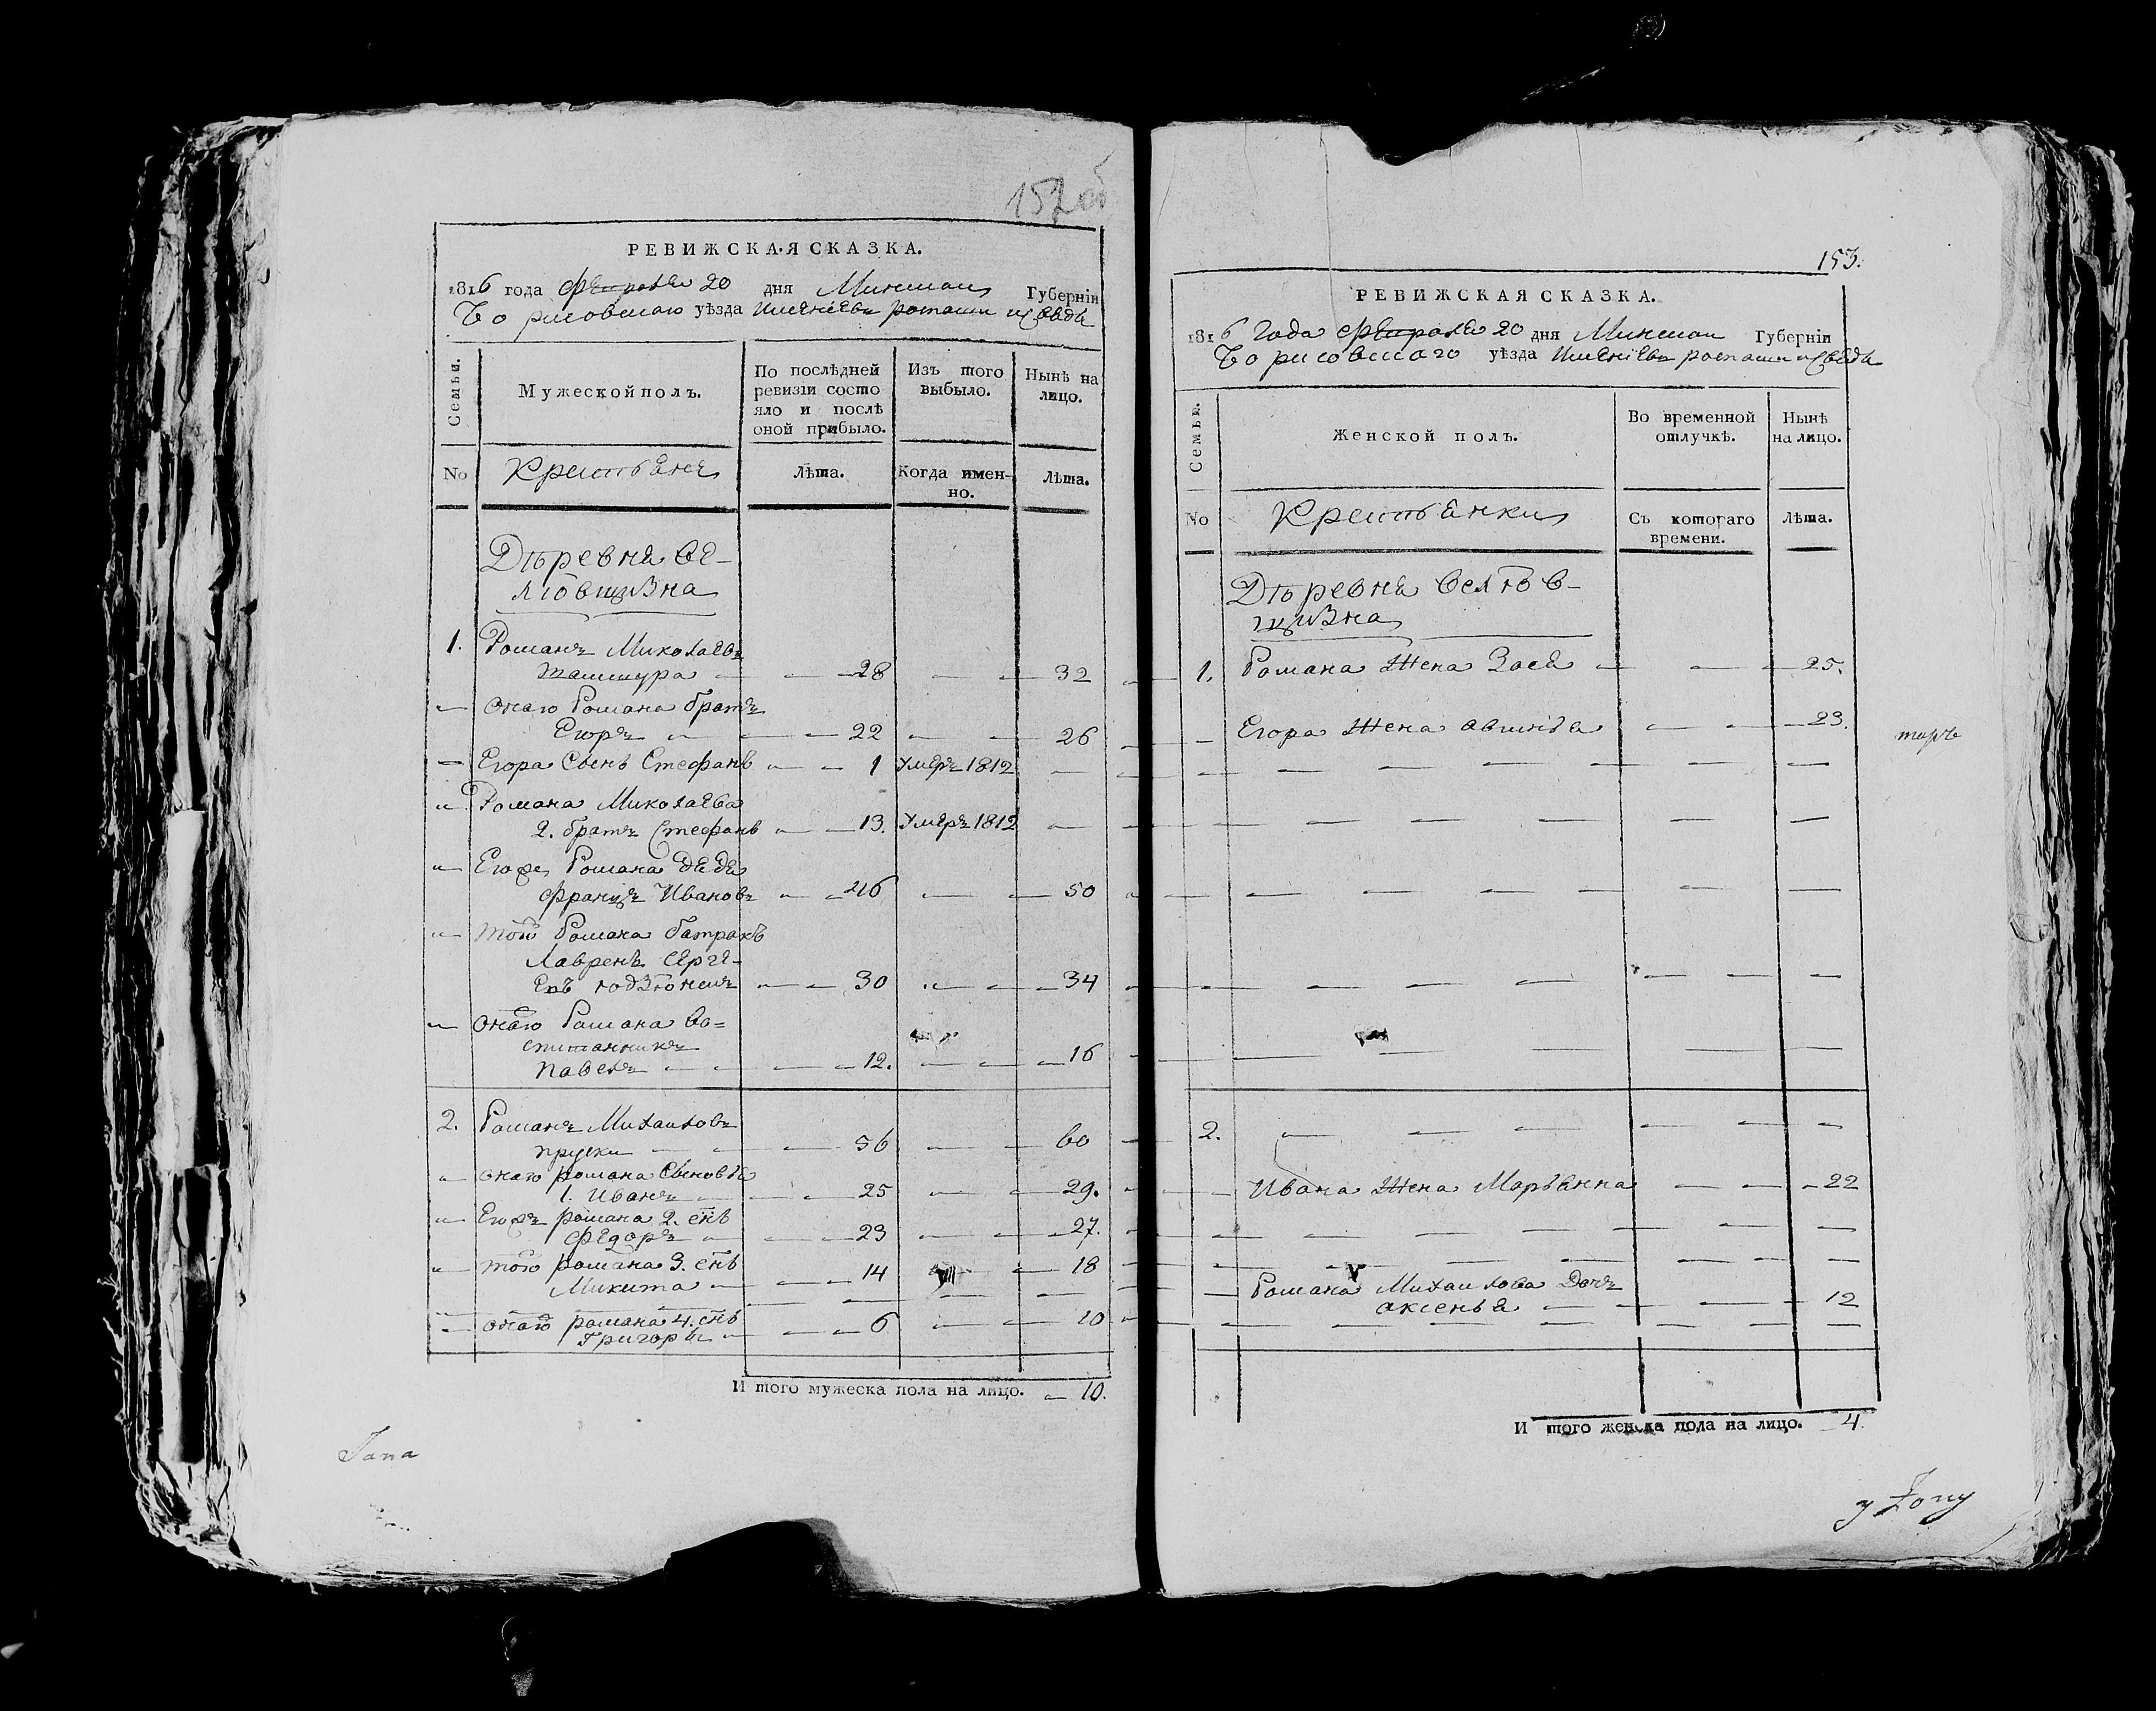 152 об
РЕВИЖСКАЯ СКАЗКА.
1816 года февраля 20 дня Минской Губерніи
Борисовскаго уѣзда Имѣніевъ
Семьи.
Мужеской полъ.
По послѣдней ревизіи состояло и послѣ оной прибыло.
Изъ того выбыло.
Нынѣ на лицо.
No
Крестьяне
Лѣта.
Когда именно.
Лѣта.
Дѣревня Ве-
лювщизна
1. Романъ Миколаевъ
— 28 — 32
— Онаго Романа братъ
Егоръ — 22 — 26
— Егора Сынъ Стефанъ — 1 Умеръ 1812 —
— Романа Миколаева
2. братъ Стефанъ — 13. Умеръ 1812 —
— Егожъ Романа дядя
Францъ Ивановъ — 46 — 50
— того Романа батракъ
Лавренъ Серге-
евъ — 30 — 34
— Онаго Романа во=
спитанникъ
Павелъ — 12. — 16
2. Романъ Михаиловъ
— 56 — 60
— Онаго романа Сыновья
1. Иванъ — 25 — 29.
— Егожъ романа 2. снъ
Федоръ — 23 — 27.
— того романа 3. снъ
Микита — 14 — 18
— Онаго романа 4. снъ
Григоры — 6 — 10
И того мужеска пола на лицо. — 10.
153.
РЕВИЖСКАЯ СКАЗКА.
1816 Года февраля 20 дня Минской Губерніи
Борисовскаго уѣзда Имѣніевъ
Семьи.
Женской полъ.
Во временной отлучкѣ.
Нынѣ на лицо.
No
Крестьянки
Съ котораго времени.
Лѣта.
Дѣревня Велюв-
щизна
1. Романа Жена Зося — 25.
— Егора Жена — 23.
2. —
— Ивана Жена Марьянна — 22
— Романа Михаилова Дочь
аксенья — 12
И того женска пола на лицо. 4.